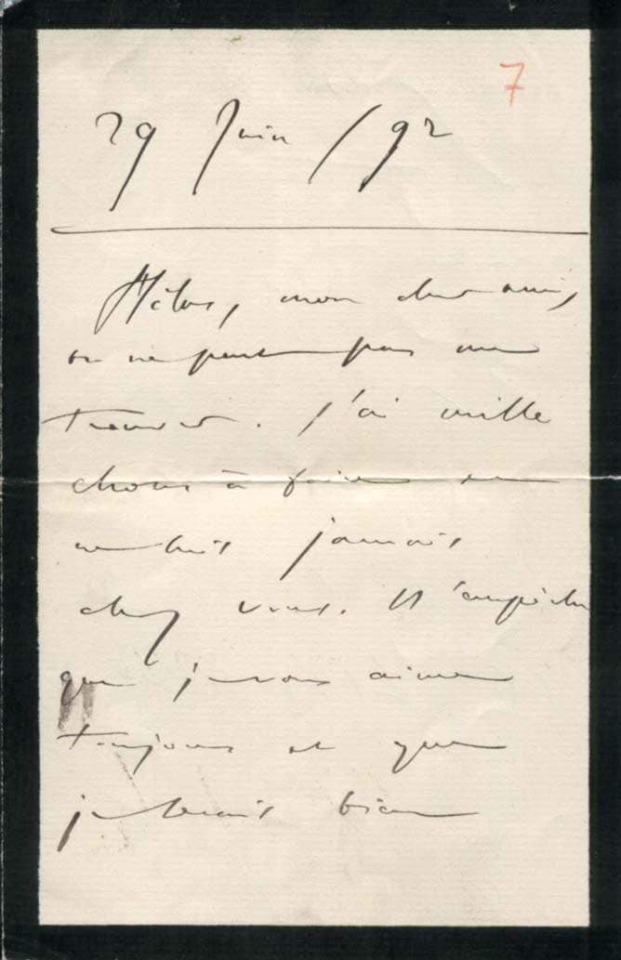 7
29 Juin /92
Hélas, mon cher ami,
on ne peut pas me
trouver. J'ai mille
choses à faire
ne suis jamais
chez vous. N'empêche
que je vous aime
toujours et que
je serais bien